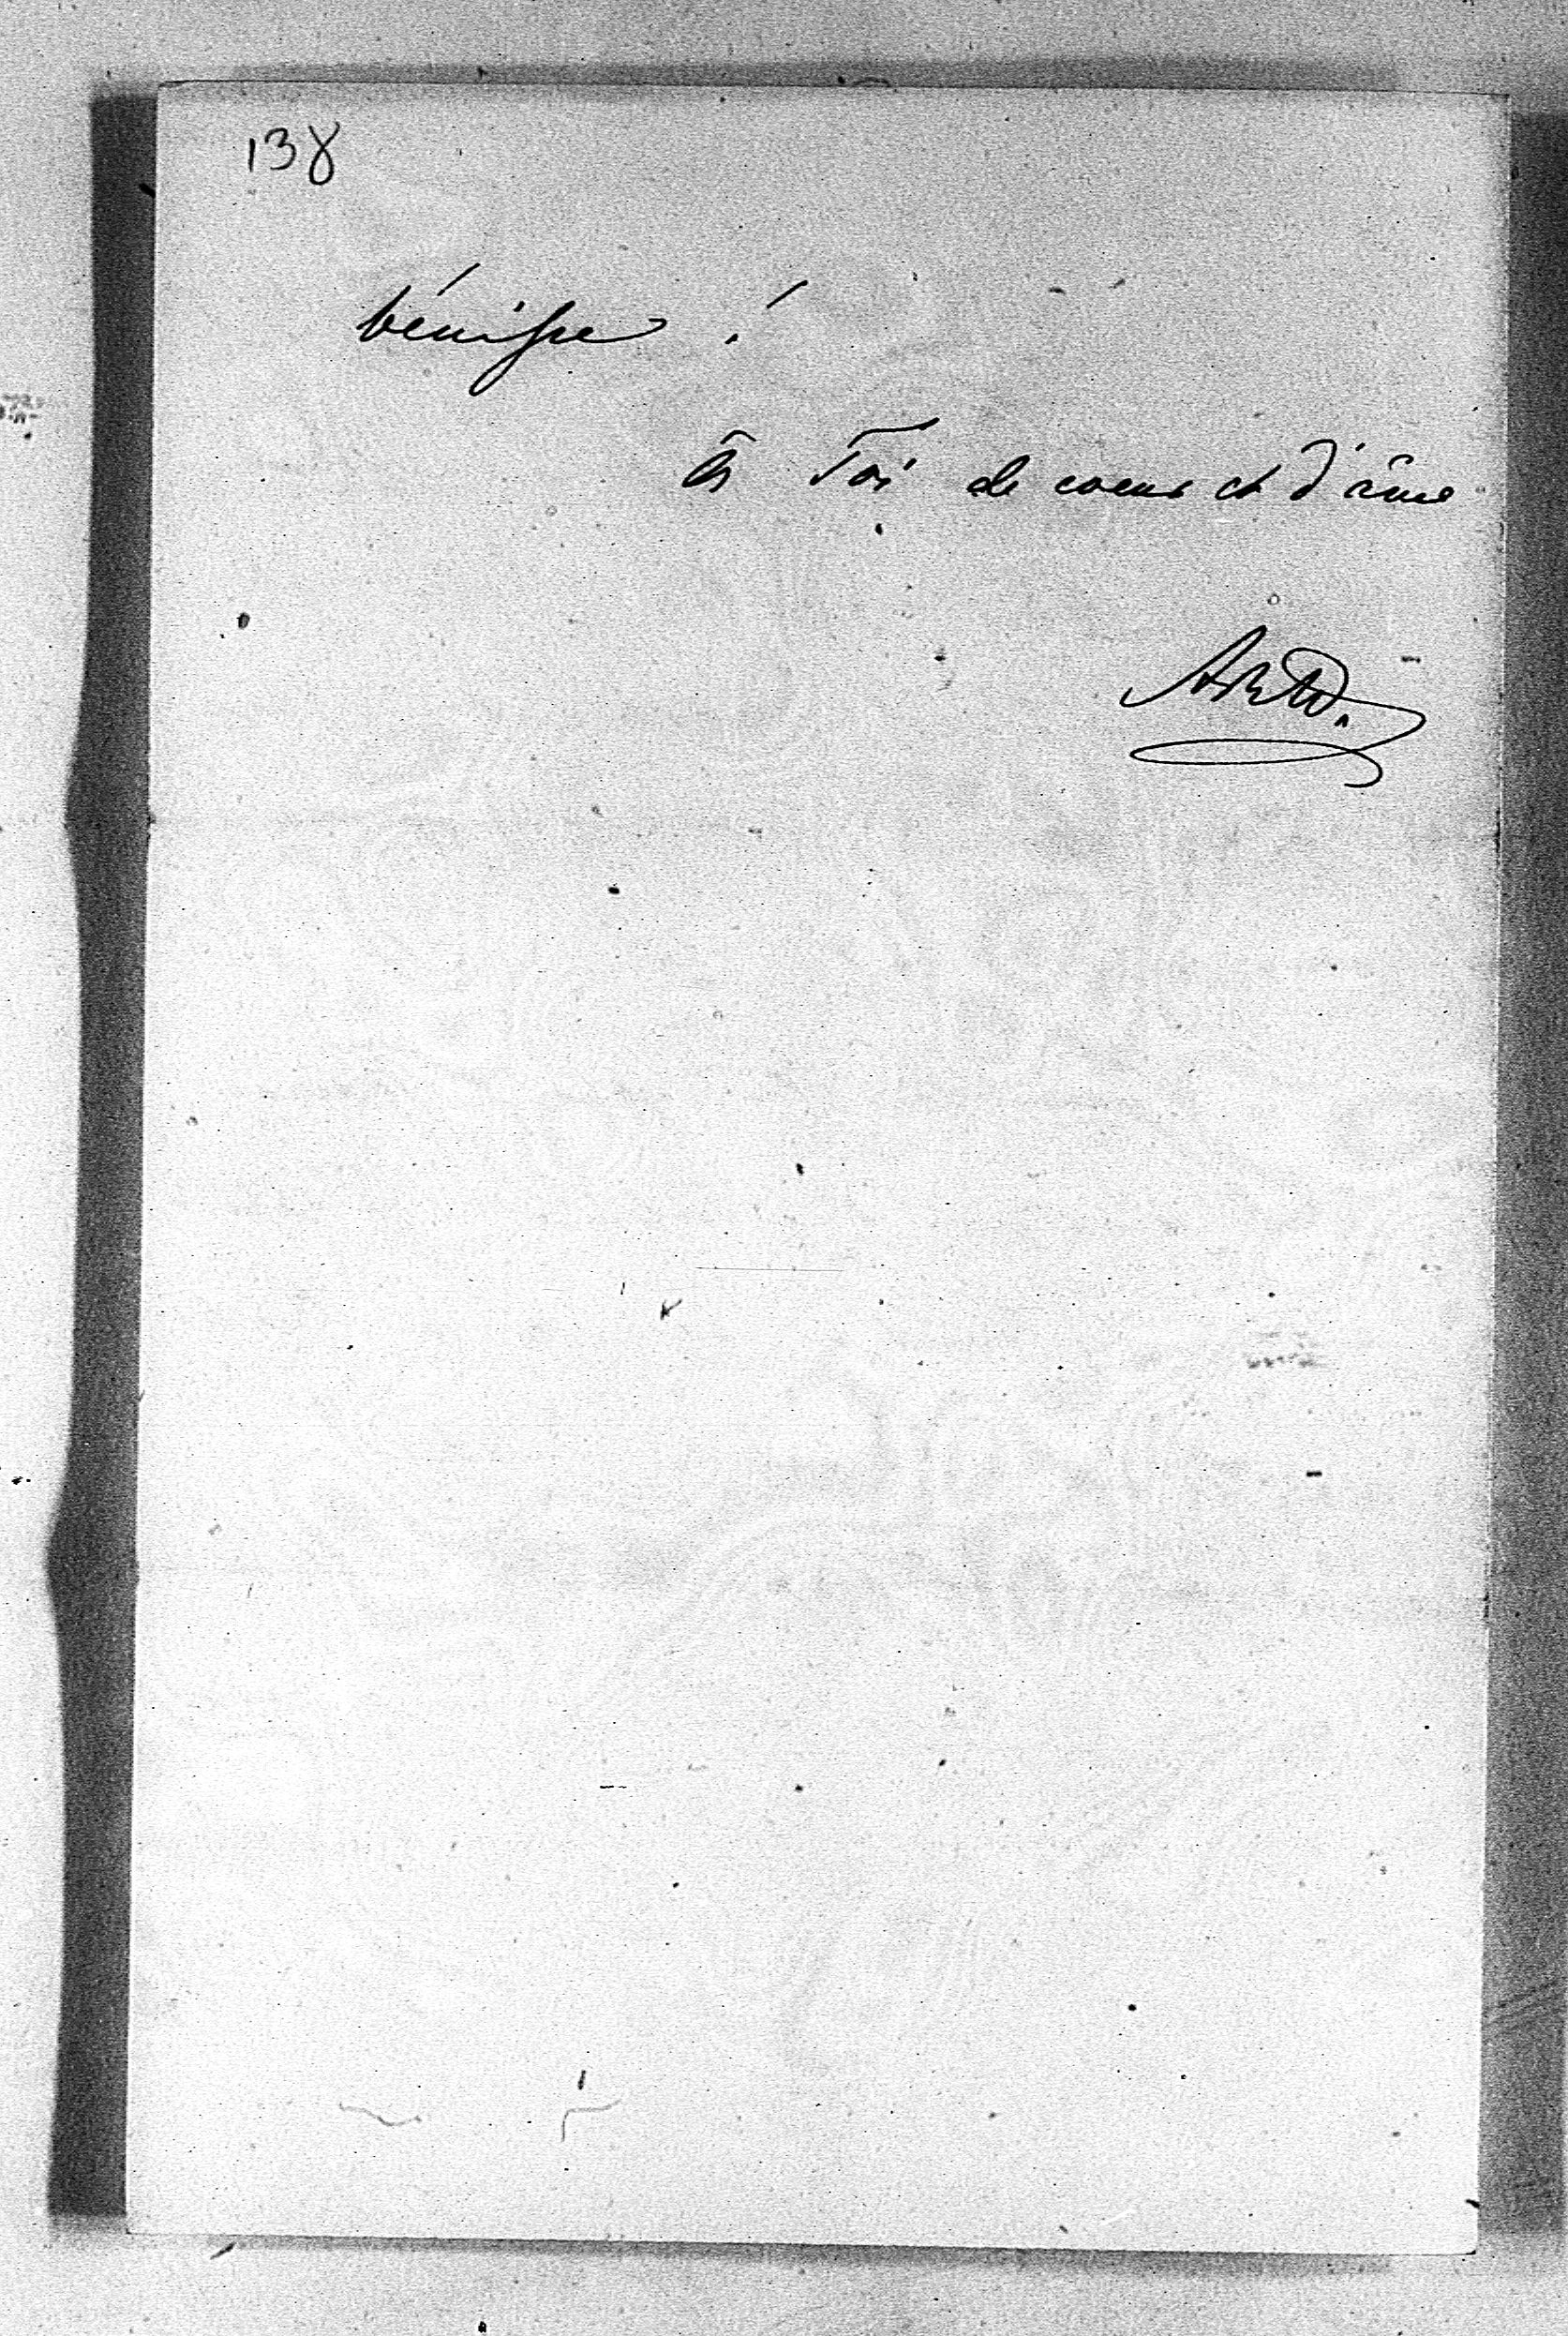 138
bénisse !
à Toi de coeur et d'âme